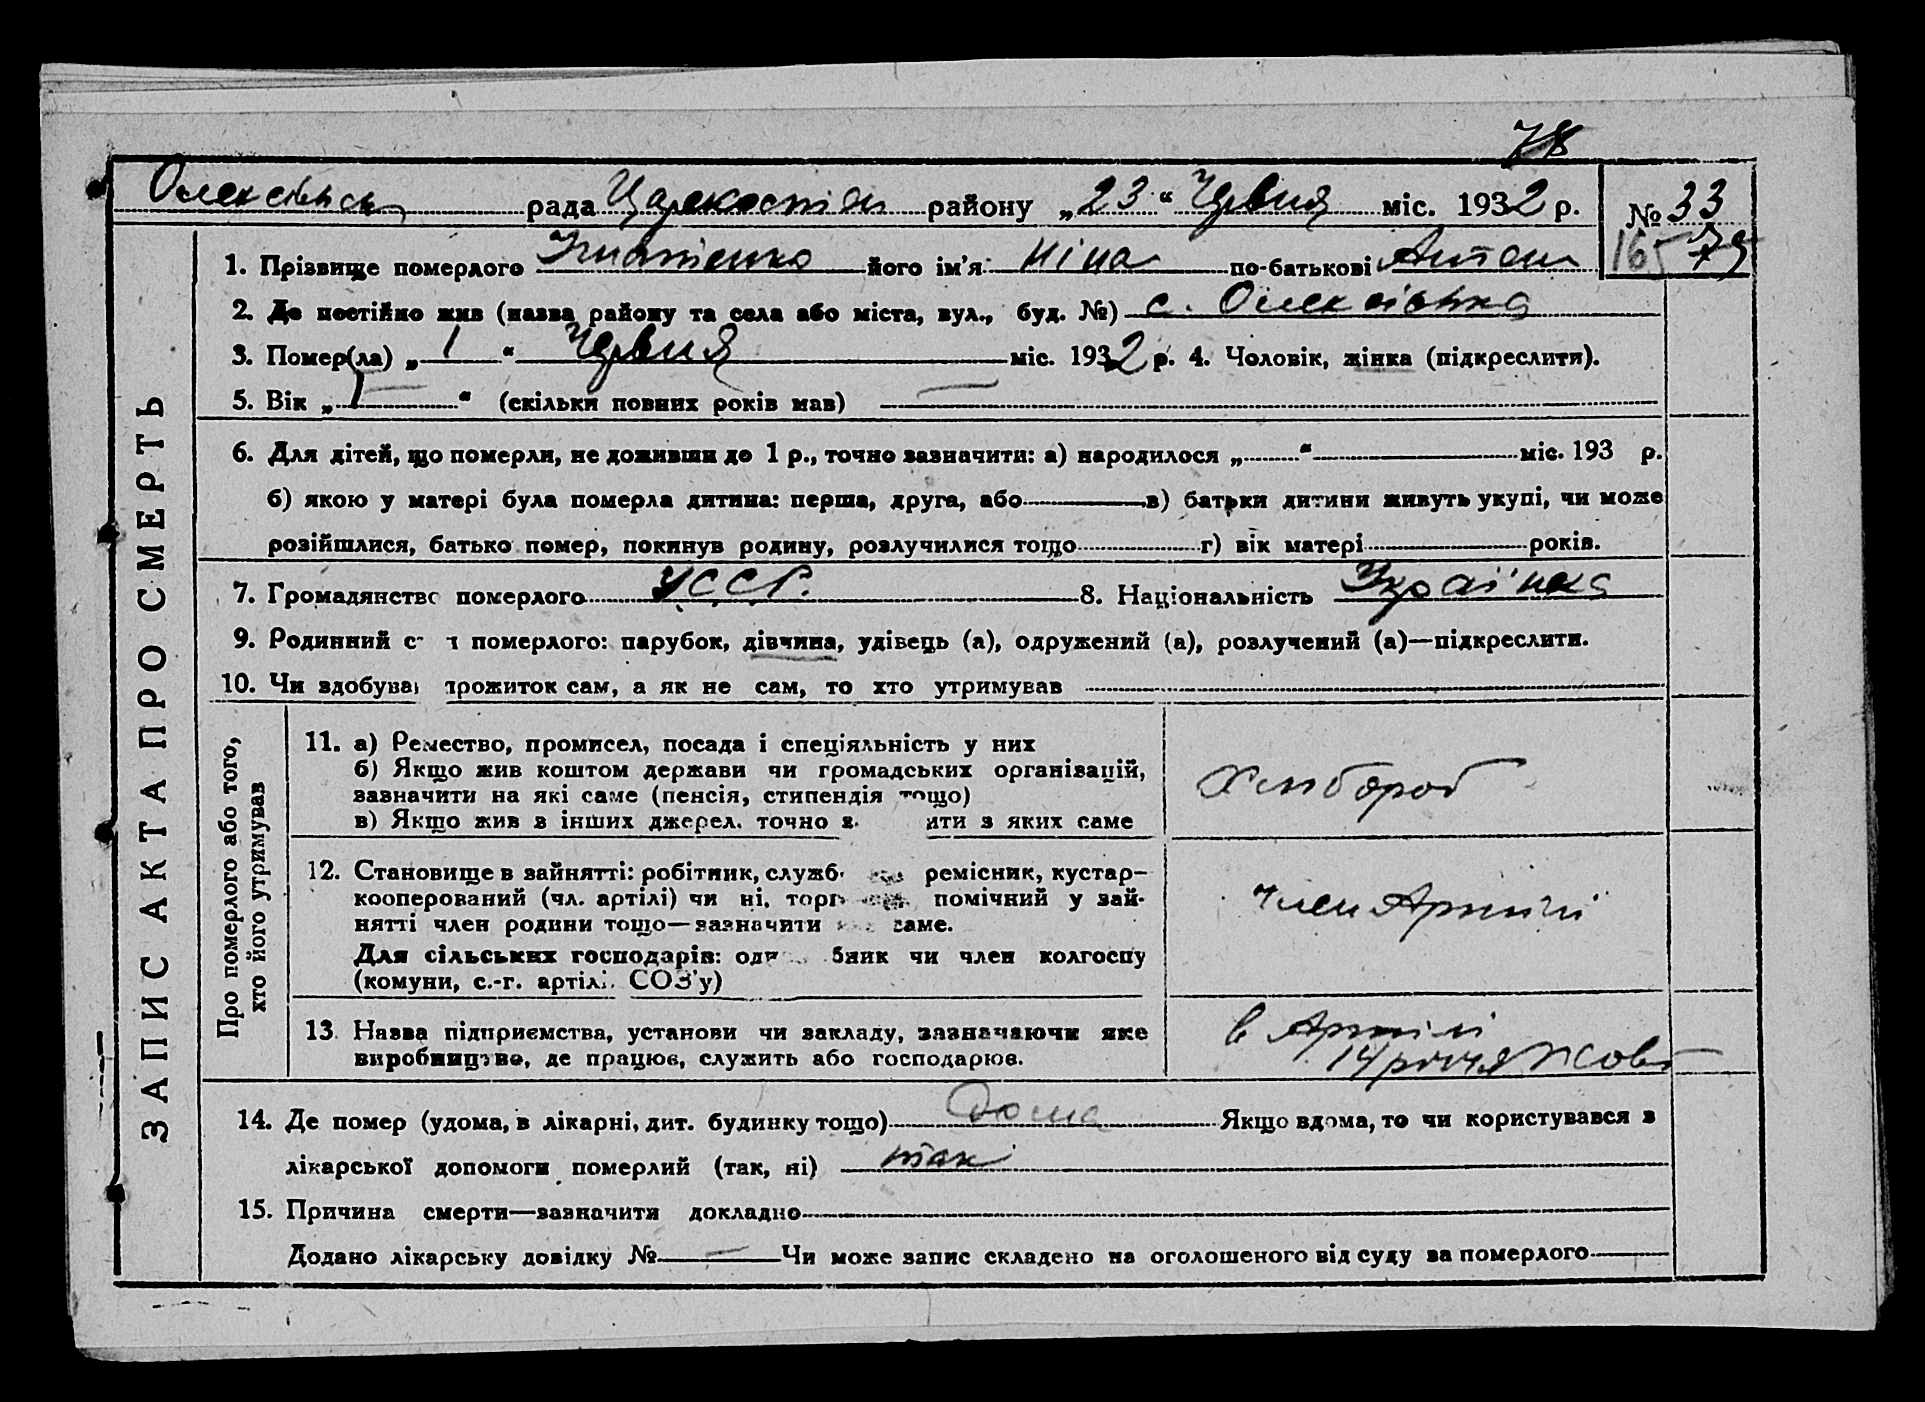 78
Олексівськ рада Царекостян району „23“ Червня міс. 1932 р. № 33
165 79
1. Прізвище померлого Ігнатенко його ім’я Ніна по-батькові Антон
2. Де постійно жив (назва району та села або міста, вул., буд. №) с. Олексівка
3. Помер(ла) „1“ Червня міс. 1932 р. 4. Чоловік, жінка (підкреслити).
5. Вік „1“ (скільки повних років мав) —
6. Для дітей, що померли, не доживши до 1 р., точно зазначити: а) народилося „ “ міс. 193 р.
б) якою у матері була померла дитина: перша, друга, або в) батьки дитини живуть укупі, чи може
розійшлися, батько помер, покинув родину, розлучилися тощо г) вік матері років.
7. Громадянство померлого УССР. 8. Національність Українка
9. Родинний с н померлого: парубок, дівчина, удівець (а), одружений (а), розлучений (а)—підкреслити.
10. Чи здобував прожиток сам, а як не сам, то хто утримував
ЗАПИС АКТА ПРО СМЕРТЬ
Про померлого або того,
хто його утримував
11. а) Ремество, промисел, посада і спеціяльність у них
б) Якщо жив коштом держави чи громадських організацій,
зазначити на які саме (пенсія, стипендія тощо)
в) Якщо жив з інших джерел, точно з ити з яких саме
Хлібороб
12. Становище в зайнятті: робітник, служб ремісник, кустар-
кооперований (чл. артілі) чи ні, торг помічний у зай-
нятті член родини тощо—зазначити саме.
Для сільських господарів: од бник чи член колгоспу
(комуни, с.-г. артілі, СОЗ’у)
член Артілі
13. Назва підприємства, установи чи закладу, зазначаючи яке
виробництво, де працює, служить або господарює.
в Артілі
14 річчя Жовт
14. Де помер (удома, в лікарні, дит. будинку тощо) Дома Якщо вдома, то чи користувався з
лікарської допомоги померлий (так, ні) так
15. Причина смерти—зазначити докладно
Додано лікарську довідку № — Чи може запис складено на оголошеного від суду за померлого